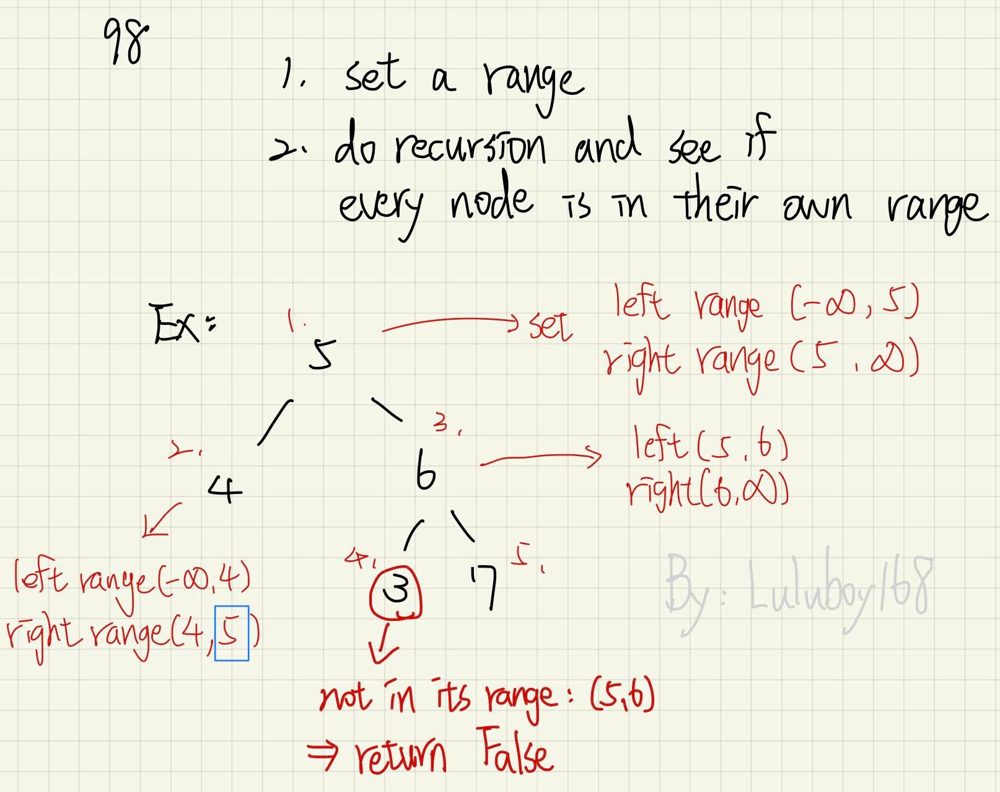 98
1. set a range
2. do recursion and see if
every node is in their own range
Ex:
1.
5
set
left range (-∞, 5)
right range (5, ∞)
2.
4
3.
6
left (5, 6)
right (6, ∞)
left range (-∞, 4)
right range (4, 5)
4.
3
5.
7
By: Luluboy168
not in its range: (5,6)
⇒ return False